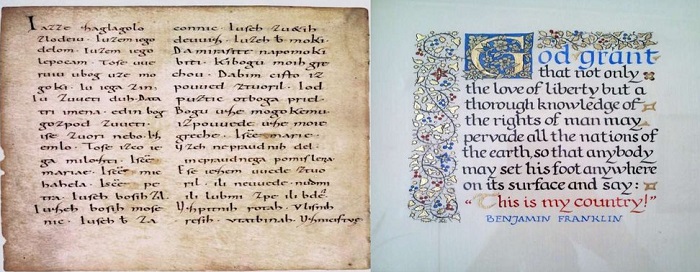 Iazze zaglagolo
Zlodeiu. Iuzem iego
delom. Iuzem iego
lepocam. Tose uue
ruiu ubog uze mo
goki. Iu iega Zin.
Iu Zuueti duh. Data
tri imena. edin bog
gozpod Zuueti.
ise Zuori nebo.
emlo. Tose izco ie
ga milosti. Isce
mariae. Isce mic
hahela. Isce pe
tra. Iuseh bosih Zil.
Iuseh bosih mose
nic. Iuseh b. Za
connic. Iuseh Zuetih
deuuiz. Iuzeh b. moki.
Da mirasite napomoki
biti. Kibogu moih gre
chou. Dabim cisto iz
pouued Ztuoril. I od
puztic otboga priel.
Bogu uze mogokemu
izpouuede vze moie
greche. Isce marie.
Vzeh nepraudnih del.
inepraudnega pomislena
Ese iesem uuede Ztuo
ril. ili neuuede. nudmi
ili lubmi Zpe ili bde.
Vzpitnih rotah. Vlisnih
resih. Vtatbinah.
God grant
that not only
the love of liberty but a
thorough knowledge of
the rights of man may
pervade all the nations of
the earth, so that anybody
may set his foot anywhere
on its surface and say:
“This is my country!”
BENJAMIN FRANKLIN